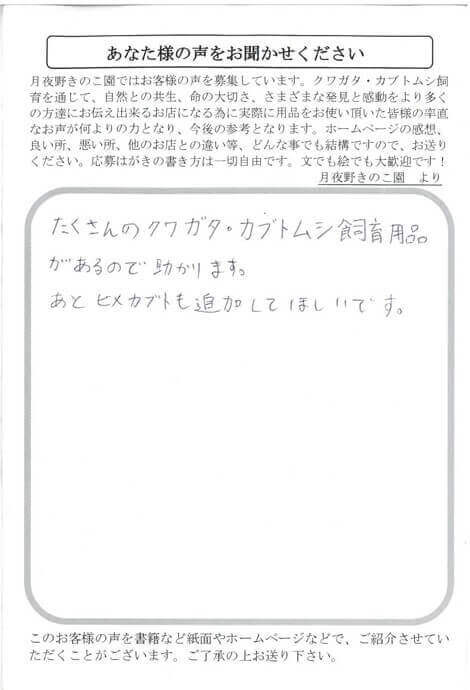 あなた様の声をお聞かせください
月夜野きのこ園ではお客様の声を募集しています。クワガタ・カブトムシ飼
育を通じて、自然との共生、命の大切さ、さまざまな発見と感動をより多く
の方達にお伝え出来るお店になる為に実際に用品をお使い頂いた皆様の率直
なお声が何よりの力となり、今後の参考となります。ホームページの感想、
良い所、悪い所、他のお店との違い等、どんな事でも結構ですので、お送り
ください。応募はがきの書き方は一切自由です。文でも絵でも大歓迎です！
月夜野きのこ園　より
たくさんのクワガタ・カブトムシ飼育用品
があるので助かります。
あとヒメカブトも追加してほしいです。
このお客様の声を書籍など紙面やホームページなどで、ご紹介させてい
ただくことがございます。ご了承の上お送り下さい。